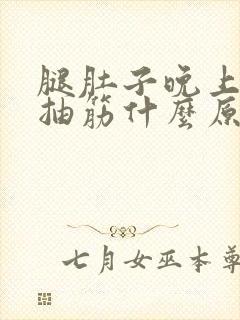 腿肚子晚上
抽筋什麼原
七月女巫本尊